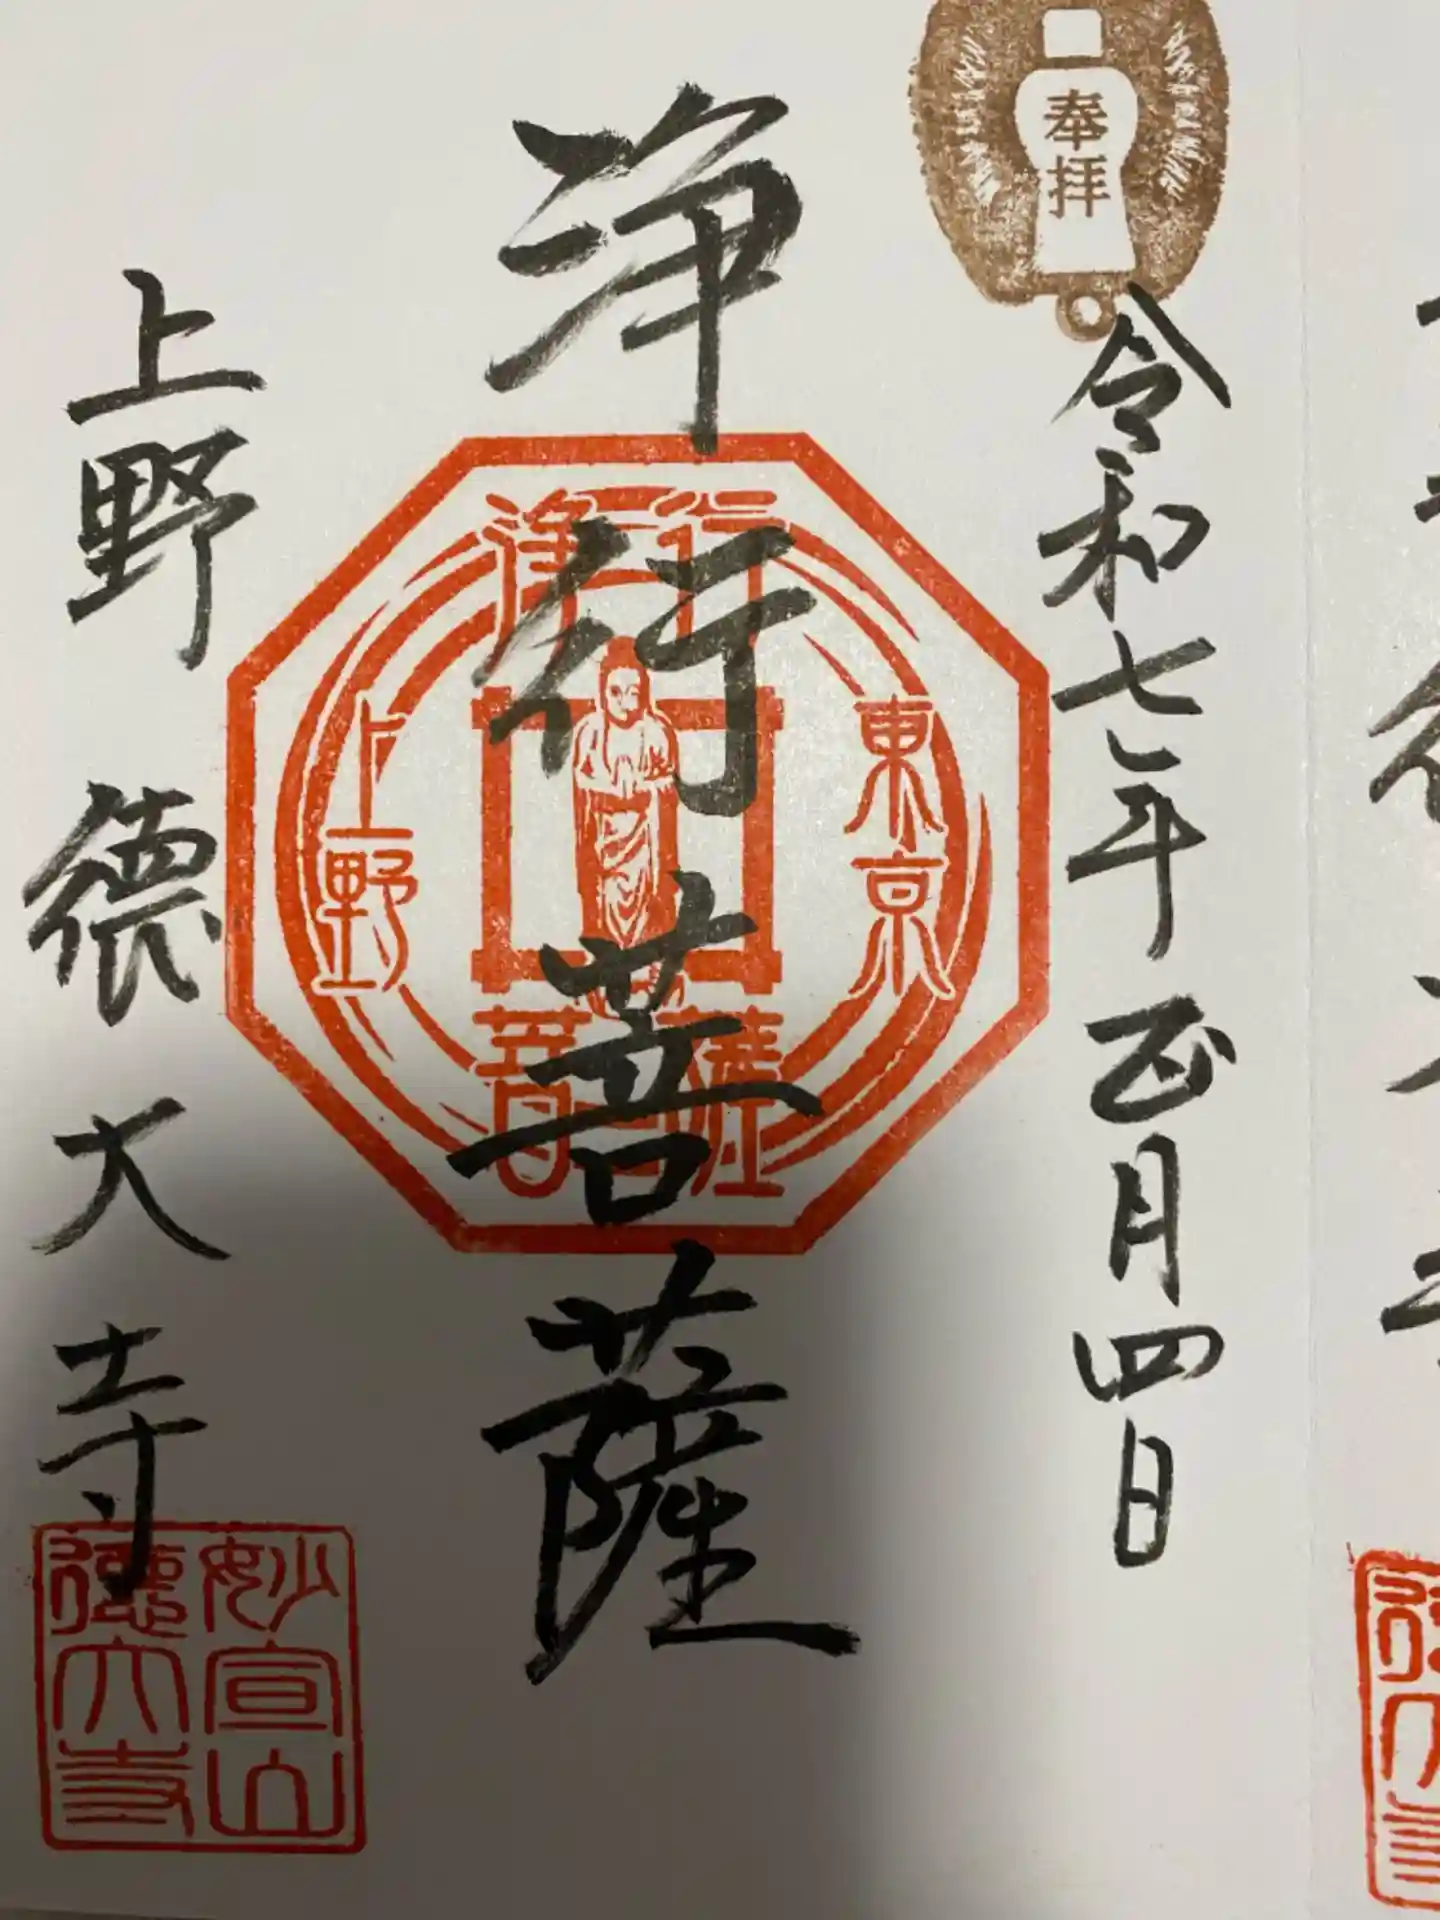 奉拝
令和七年正月四日
浄行菩薩
浄行
東京
上野
菩薩
上野 德大寺
妙宣山
德大寺